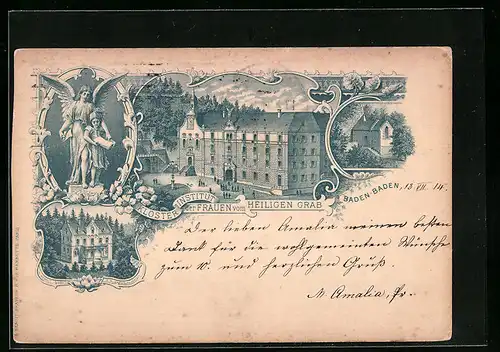 INSTITUT
KLOSTER der FRAUEN vom HEILIGEN GRAB
BADEN-BADEN, 13. VII. 14.
Der lieben Amalia meinen besten
Dank für die wohlgemeinten Wünsche
zum 10. und herzlichen Gruß.
M. Amalia, Pr.